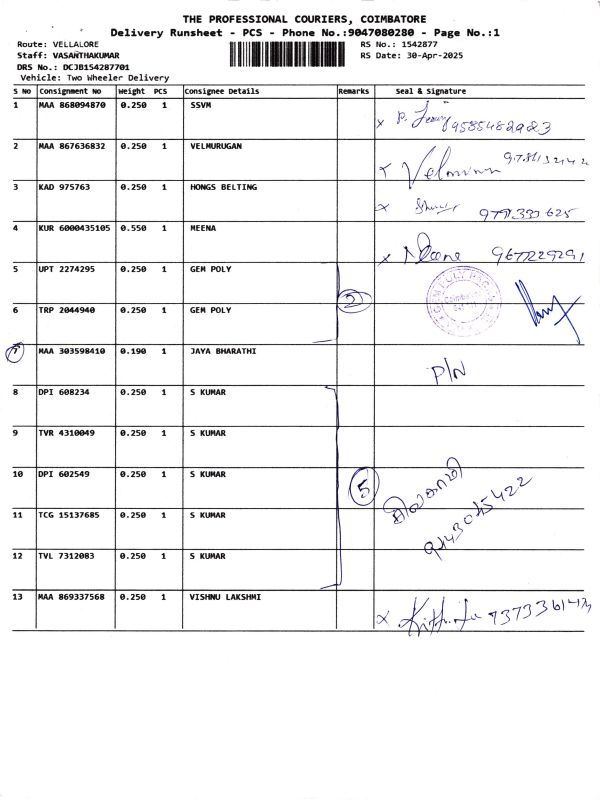 THE PROFESSIONAL COURIERS, COIMBATORE
Delivery Runsheet - PCS - Phone No.:9047080280 - Page No.:1
Route: VELLALORE
Staff: VASANTHAKUMAR
DRS No.: DCJB154287701
Vehicle: Two Wheeler Delivery
RS No.: 1542877
RS Date: 30-Apr-2025
S No Consignment No Weight PCS Consignee Details Remarks Seal & Signature
1 MAA 868094870 0.250 1 SSVM
2 MAA 867636832 0.250 1 VELMURUGAN
3 KAD 975763 0.250 1 HONGS BELTING
4 KUR 6000435105 0.550 1 MEENA
5 UPT 2274295 0.250 1 GEM POLY
2
6 TRP 2044940 0.250 1 GEM POLY
7 MAA 303598410 0.190 1 JAYA BHARATHI P/N
8 DPI 608234 0.250 1 S KUMAR
9 TVR 4310049 0.250 1 S KUMAR
10 DPI 602549 0.250 1 S KUMAR 5
11 TCG 15137685 0.250 1 S KUMAR
12 TVL 7312083 0.250 1 S KUMAR
13 MAA 869337568 0.250 1 VISHNU LAKSHMI